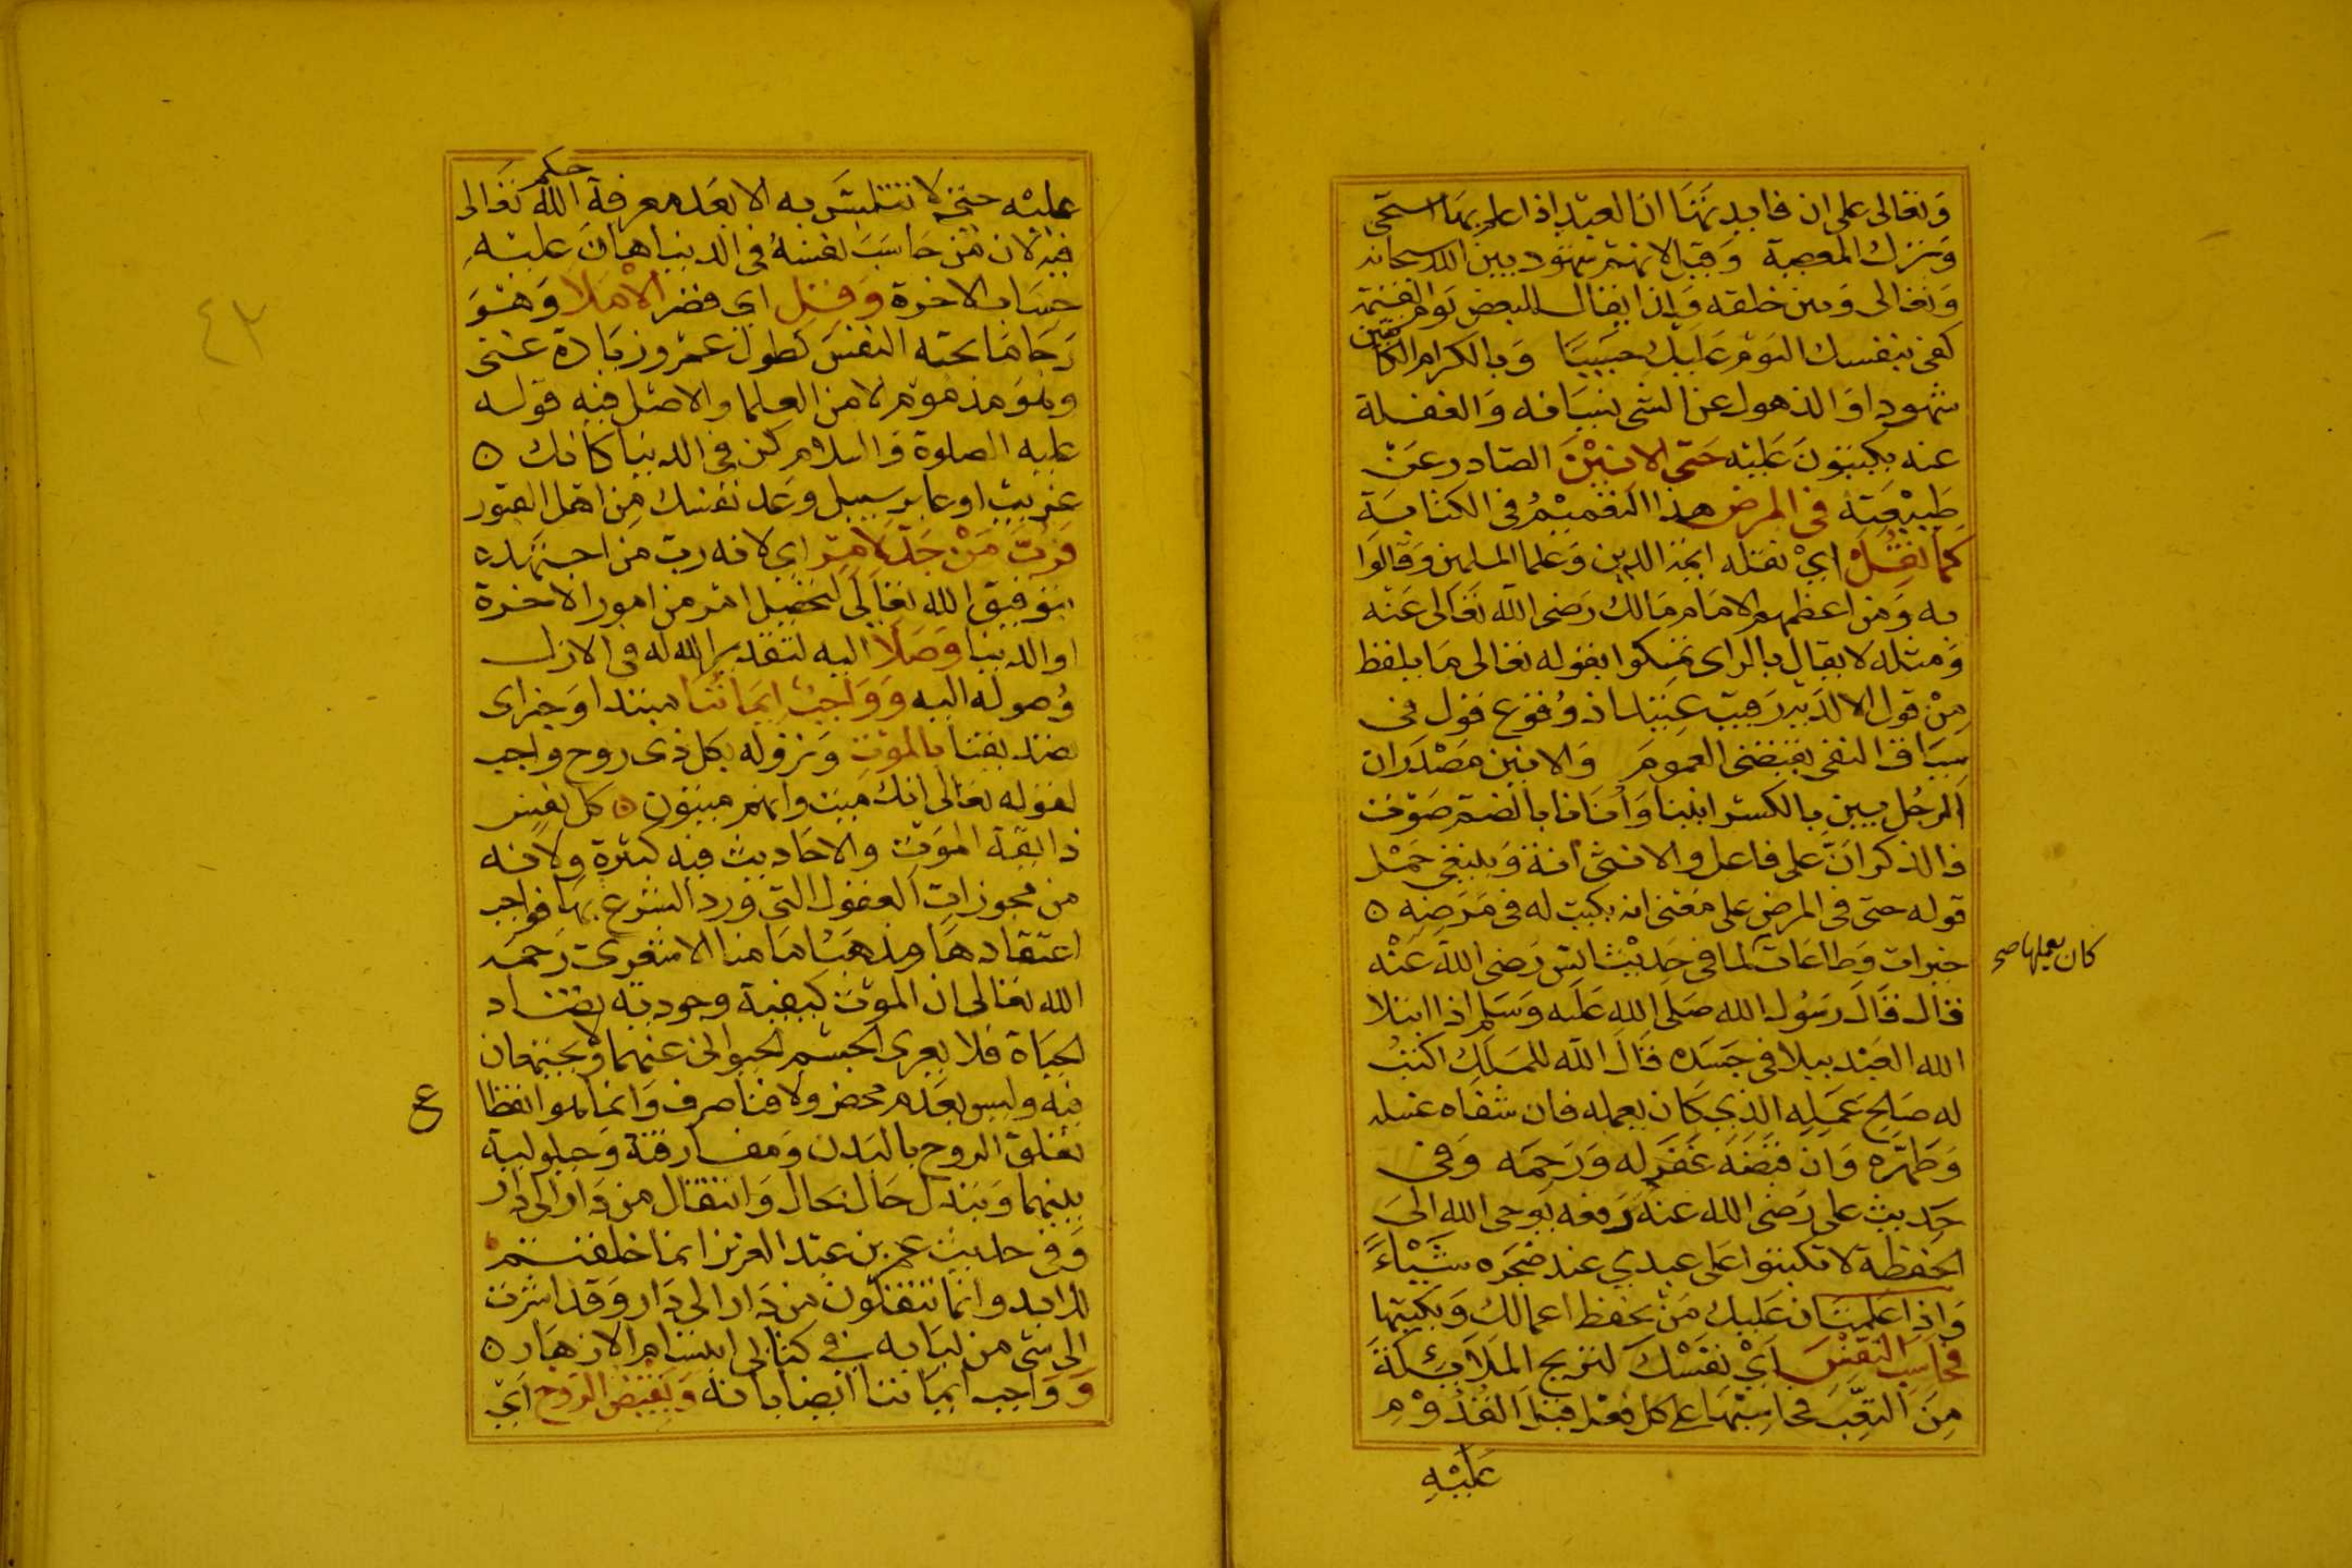 وتعالى على ان فايدتهنا ان العبد اذا علم بها استحى
وترك المعصية وقيل لانهم شهود بين الله سبحانه
وتعالى وبين خلقه ولذا يقال للبعض يوم القيمة
كفى بنفسك اليوم عليك حسيبا وبالكرام الكاتبين
شهودا والذهول عن الشى نسيانه والغفلة
عنه يكتبون عليه حتى الانين الصادر عن
طبيعته فى المرض هذا التعميم فى الكتابة
كما نقل اي نقله ايمة الدين وعلما المسلمين وقالوا
به ومن اعظمهم الامام مالك رضى الله تعالى عنه
ومثله لا يقال بالراى تمسكوا بقوله تعالى ما يلفظ
من قول الا لديه رقيب عتيد اذ وقوع قول فى
سياق النفى يقتضى العموم والانين مصدر ان
الرجل يين بالكسر انينا وانانا بالضم صوت
فالذكر ان على فاعل والانثى انة وينبغى حمل
قوله حتى فى المرض على معنى انه يكتب له فى مرضه ه
خيرات وطاعات لما فى حديث انس رضى الله عنه
كان يعملها صح
قال قال رسول الله صلى الله عليه وسلم اذا ابتلا
الله العبد ببلا فى جسده قال الله للملك اكتب
له صالح عمله الذي كان يعمله فان شفاه غسله
وطهره وان قبضه غفر له ورحمه وفى
حديث على رضى الله عنه رفعه يوحى الله الى
الحفظة لا تكتبوا على عبدي عند ضجره شيئا
واذا علمت ان عليك من يحفظ اعمالك ويكتبها
فحاسب النفس اي نفسك لتريح الملائكة
من التعب فحاسبها على كل فعل قبل القدوم
عليه
عليه حتى لا تتلبس به الا بعد معرفة حكم الله تعالى
فيه لان من حاسب نفسه فى الدنيا هان عليه
حساب الاخرة وقلل اي قصر الاملا وهو
رجا ما تحبه النفس كطول عمر وزيادة غنى
وهو مذموم لا من العلما والاصل فيه قوله
عليه الصلوة والسلام كن فى الدنيا كانك ه
غريب او عابر سبيل وعد نفسك من اهل القبور
فرب من جد لامر اي لانه رب من اجتهد
بتوفيق الله تعالى لتحصيل امر من امور الاخرة
او الدنيا وصلا اليه لتقدير الله له فى الازل
وصوله اليه وواجب ايماننا مبتدا وخبر اى
تصديقنا بالموت ونزوله بكل ذى روح واجب
لقوله تعالى انك ميت وانهم ميتون ه كل نفس
ذائقة الموت والاحاديث فيه كثيرة ولانه
من مجوزات العقول التى ورد الشرع بها فواجب
اعتقادها ومذهب امامنا الاشعرى رحمه
الله تعالى ان الموت كيفية وجودية تضاد
الحياة فلا يعرى الجسم الحيوانى عنهما ولا يجتمعان
فيه وليس بعدم محض ولا فنا صرف وانما هو انقطاع
تعلق الروح بالبدن ومفارقة وحيلولة
بينهما وتبدل حال بحال وانتقال من دار الى دار
وفى حديث عمر بن عبد العزيز انما خلقتم
للابد وانما تنتقلون من دار الى دار وقد اشرت
الى شى من لبابه فى كتابى ابتسام الازهار ه
وواجب ايماننا ايضا بانه ويقبض الروح اي
٤٣